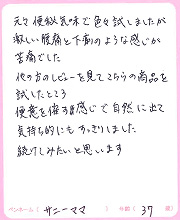 元々便秘気味で色々試しましたが
激しい腹痛と下剤のような感じが
苦痛でした
他の方のレビューを見てこちらの商品を
試したところ
便意を催す感じで自然に出て
気持ち的にもすっきりしました
続けてみたいと思います
ペンネーム（ サニーママ ） 年齢（ 37 歳）